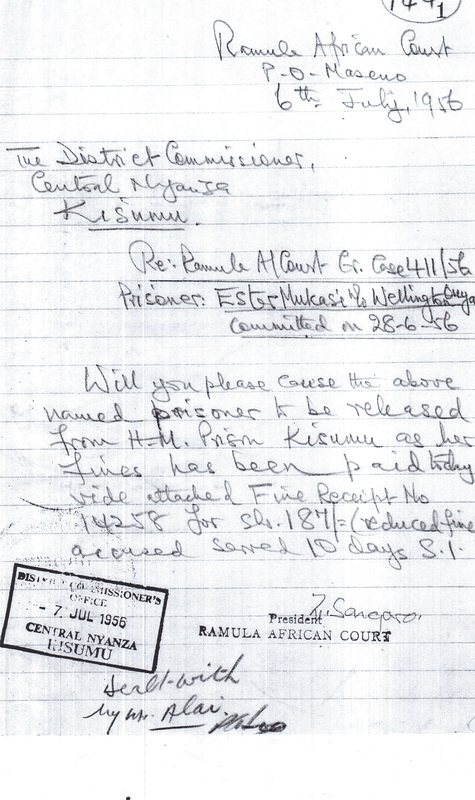 1491
Ramula African Court
P-O-Maseno
6th July, 1956
The District Commissioner,
Central Nyanza
Kisumu.
Re:- Ramula A/Court Cr. Case 411/56
Prisoner: Ester Mukasi W/o Wellington
Committed on 28-6-56
Will you please cause the above
named prisoner to be released
from H.M. Prison Kisumu as her
fines has been paid today
vide attached Fine Receipt No
14258 for Shs. 187/= (reduced fine
accused served 10 days S.I.
DISTRICT COMMISSIONER'S
OFFICE
- 7 JUL 1956
CENTRAL NYANZA
KISUMU
President
RAMULA AFRICAN COURT
dealt with
by Mr. Alai.